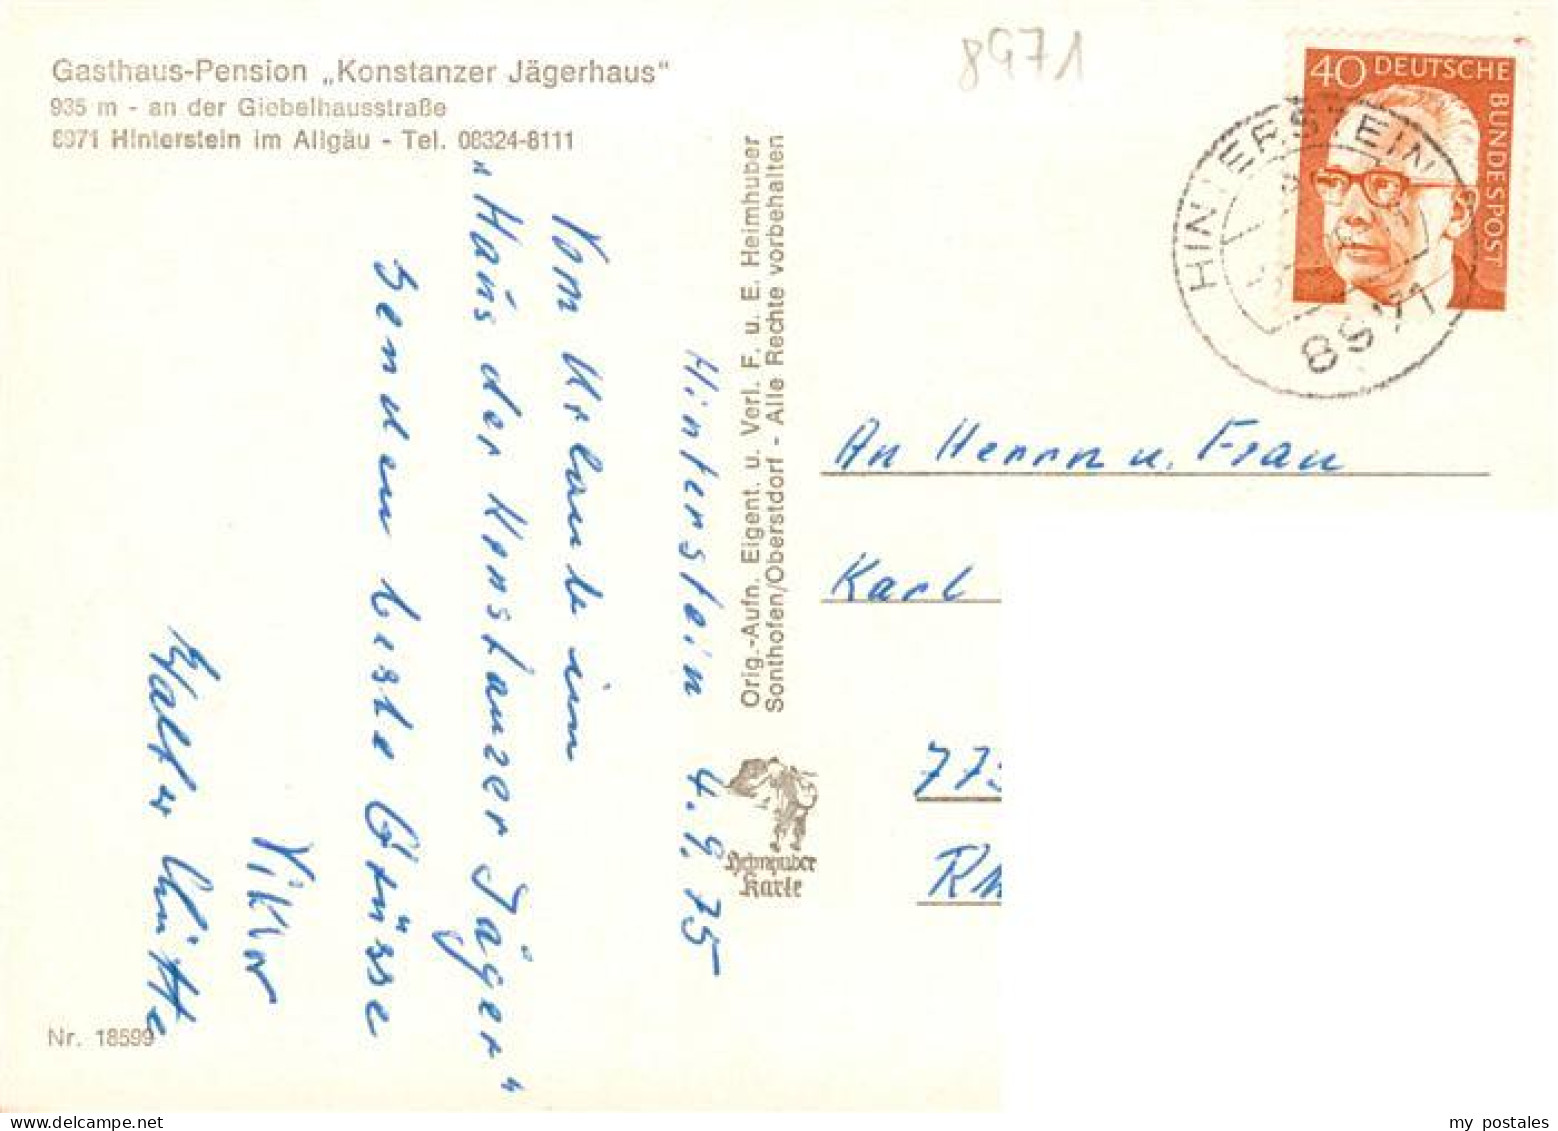 Gasthaus-Pension „Konstanzer Jägerhaus"
935 m - an der Giebelhausstraße
8971 Hinterstein im Allgäu - Tel. 08324-8111
8971
40 DEUTSCHE BUNDESPOST
HINTERSTEIN
8971
Hinterstein 4.9.75
Vom Urlaube im
„Haus der Konstanzer Jäger"
senden beste Grüsse
Viktor
Walter
Orig.-Aufn. Eigent. u. Verl. F. u. E. Heimhuber
Sonthofen/Oberstdorf - Alle Rechte vorbehalten
Heimhuber
Karte
An Herrn u. Frau
Karl
773
Nr. 18599
my postales